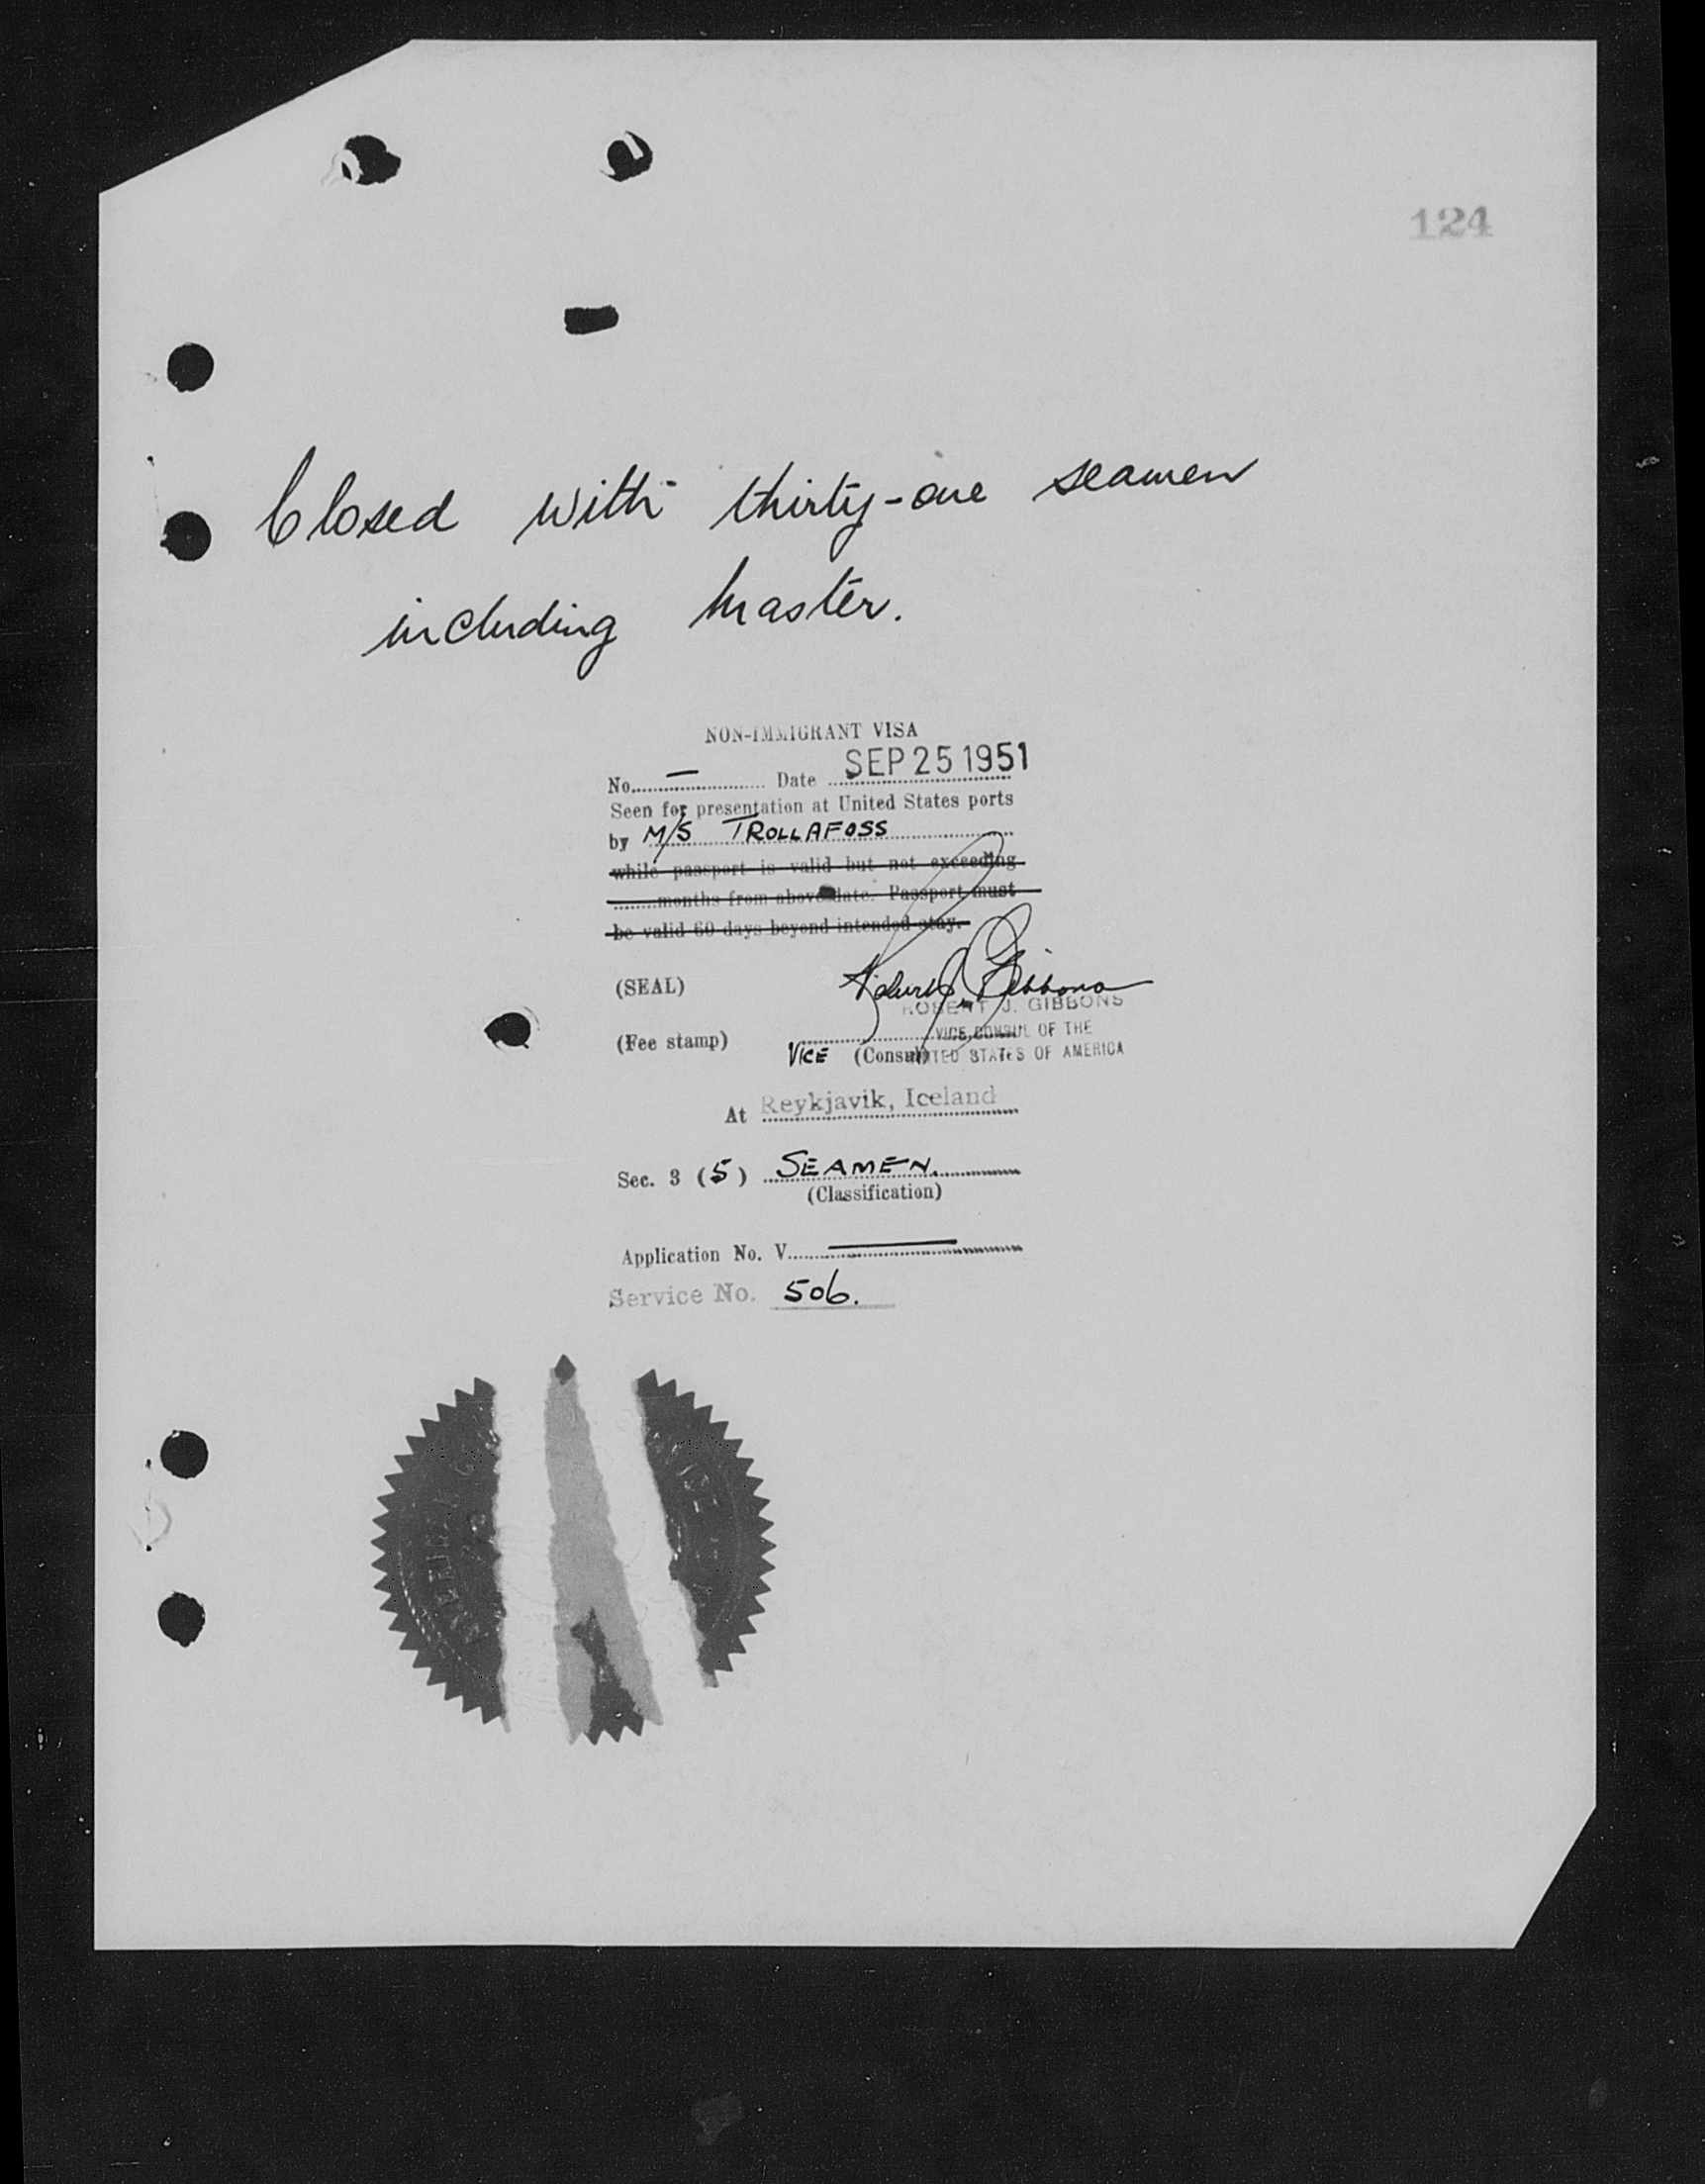 124
Closed with thirty-one seamen
including Master.
NON-IMMIGRANT VISA
No. — Date SEP 25 1951
Seen for presentation at United States ports
by M/S TROLLAFOSS
while passport is valid but not exceeding
........months from above date. Passport must
be valid 60 days beyond intended stay.
(SEAL) Robert J. Gibbons
ROBERT J. GIBBONS
(Fee stamp) VICE CONSUL OF THE
VICE (Consul) UNITED STATES OF AMERICA
At Reykjavik, Iceland
Sec. 3 (5) SEAMEN.
(Classification)
Application No. V. —
Service No. 506.